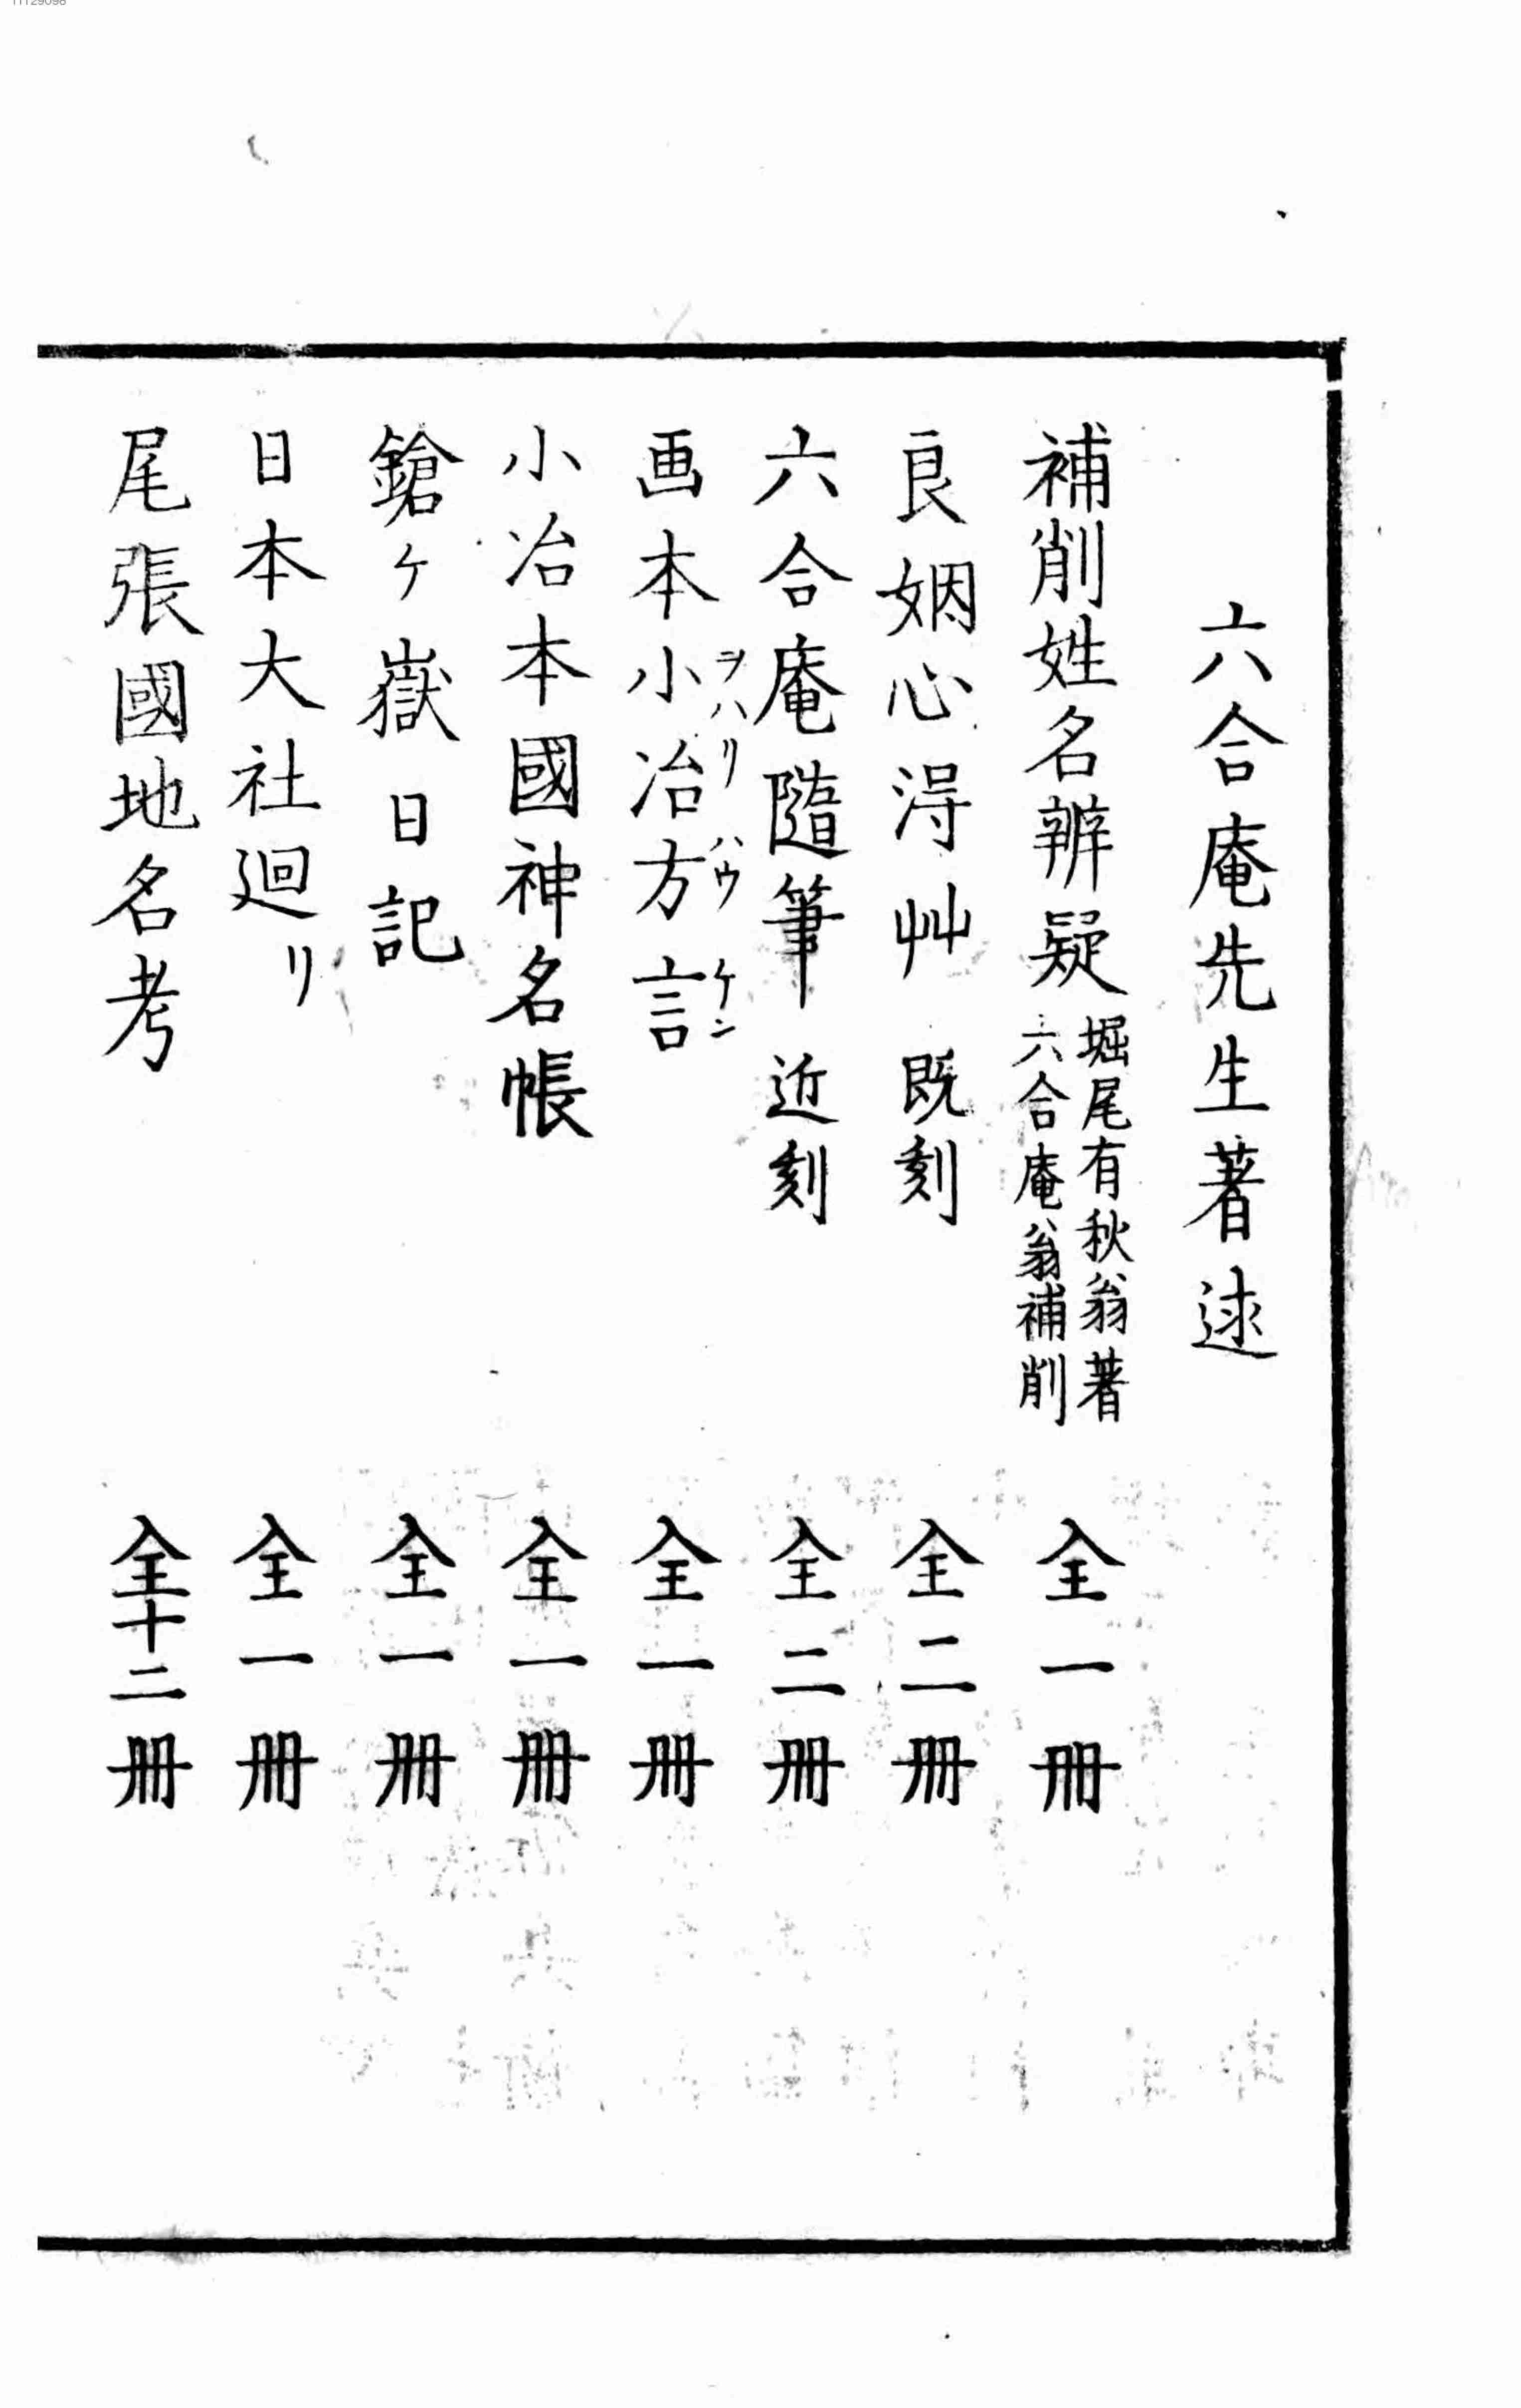 11129098
六合庵先生著述
補削姓名辨疑 堀尾有秋翁著 六合庵翁補削 全一冊
良姻心淂艸 既刻 全二冊
六合庵隨筆 近刻 全二冊
画本小冶方言 ヲハリハウケン 全一冊
小冶本國神名帳 全一冊
鎗ヶ嶽日記 全一冊
日本大社廻リ 全一冊
尾張國地名考 全十二冊